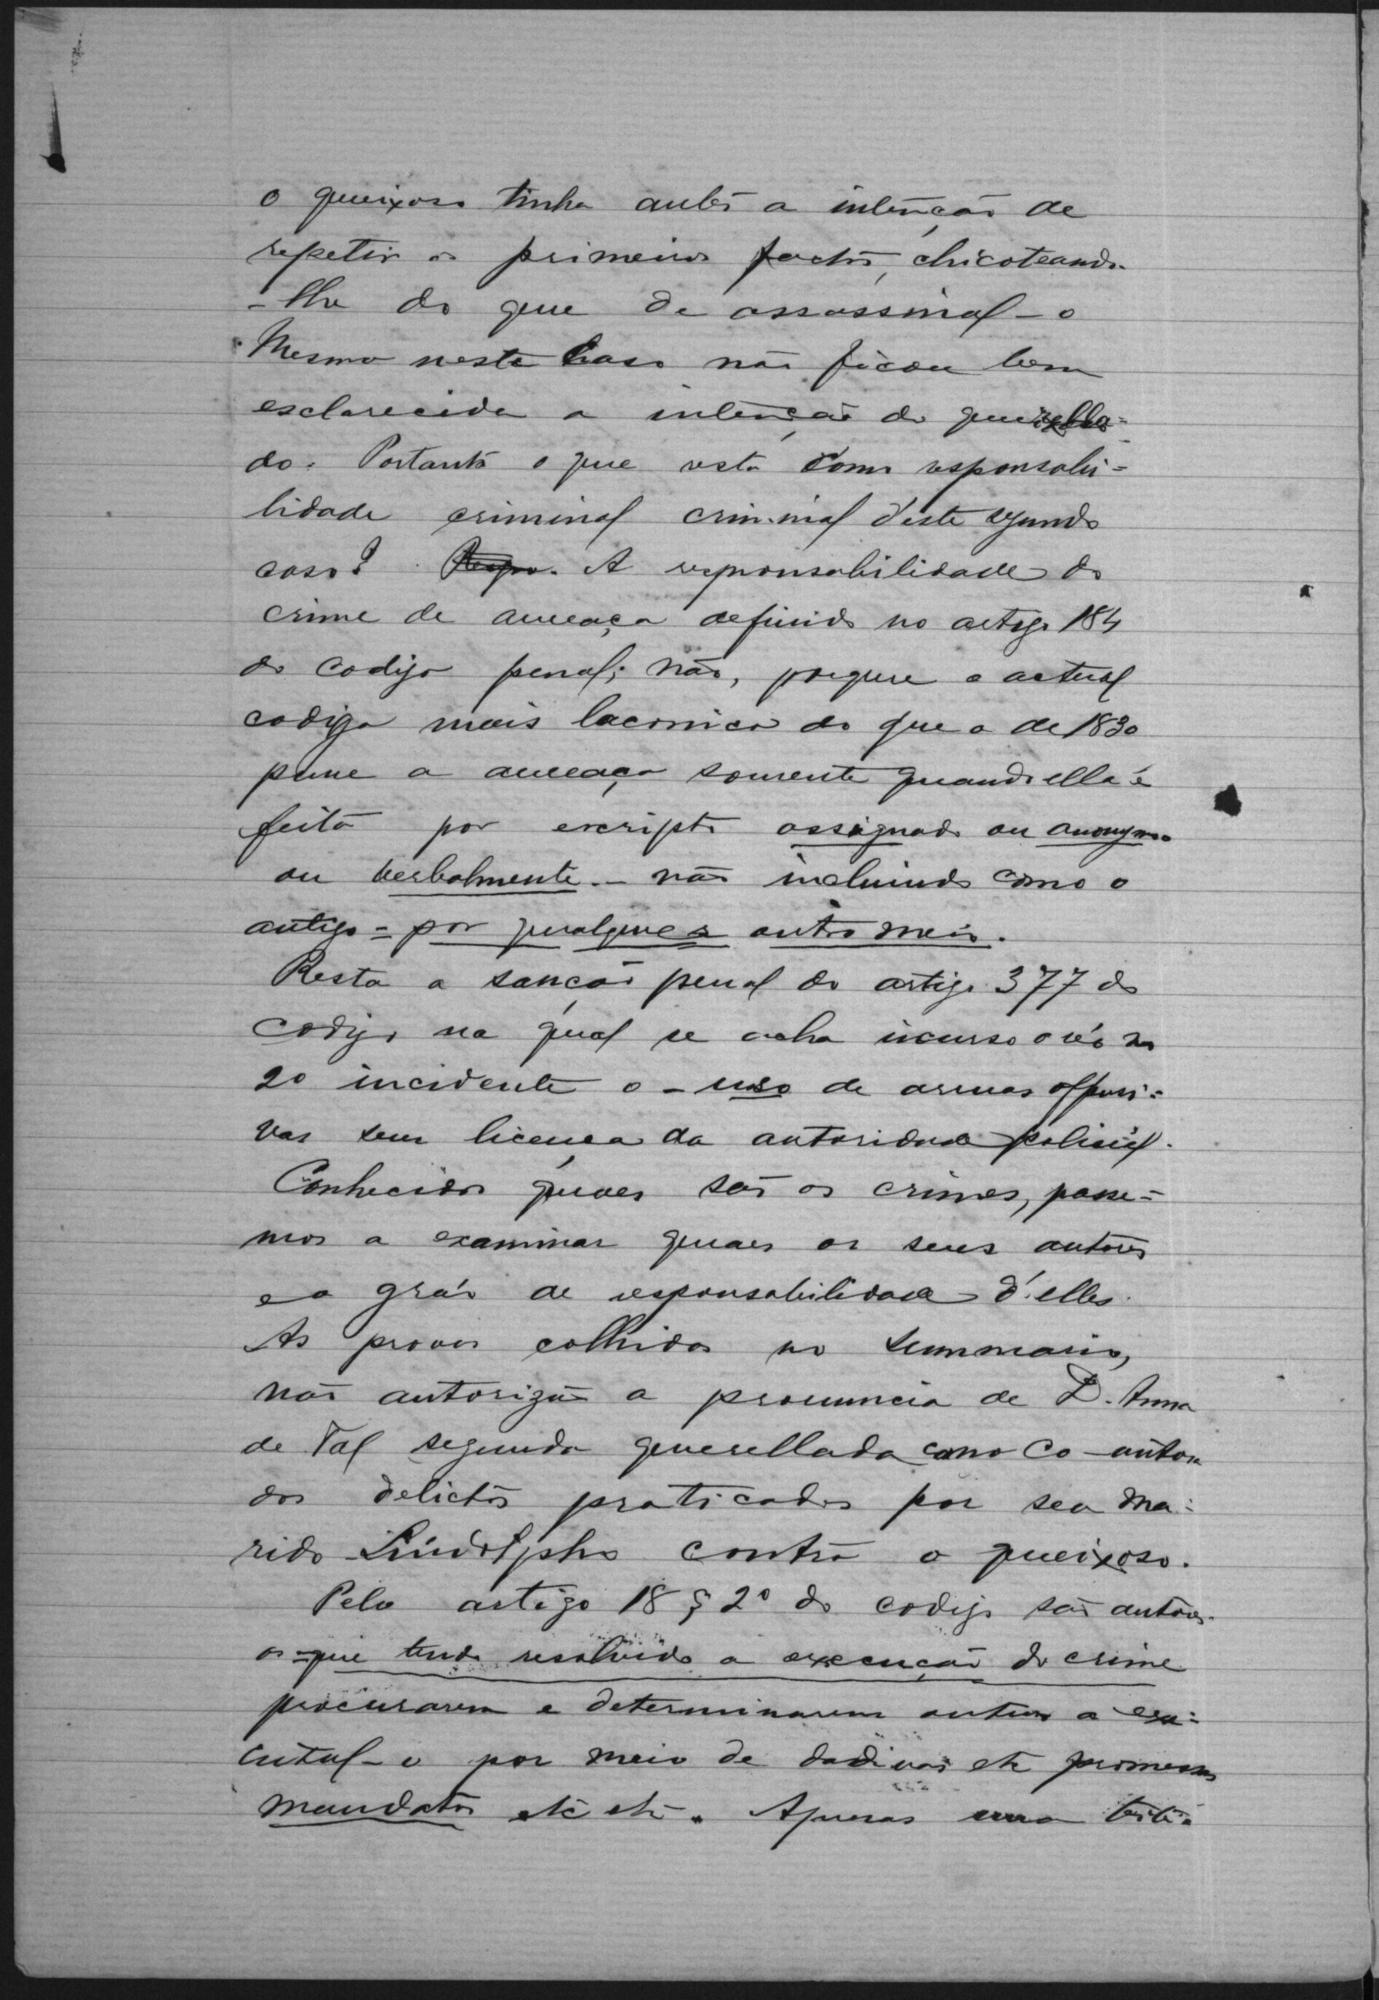 o queixoso tinha antes a intenção de
repetir os primeiros factos, chicoteando-
-lhe do que de assassinal-o
Mesmo neste caso não ficou bem
esclarecida a intenção do querella=
do. Portanto o que resta como responsabi=
lidade criminal criminal d'este segundo
caso? Respo. A responsabilidade do
crime de ameaça definido no artigo 184
do codigo penal; não, porque o actual
codigo mais laconico do que o de 1830
pune a ameaça somente quando ella é
feita por escripto assignado ou anonymo
ou verbalmente - não incluindo como o
antigo = por qualquer outro meio.
Resta a sancção penal do artigo 377 do
codigo na qual se acha incurso o réo no
2o incidente o - uso de armas offensi=
vas sem licença da autoridade policial.
Conhecidos quaes são os crimes, passe=
mos a examinar quaes os seus autores
e o gráo de responsabilidade d'elles.
As provas colhidas no summario,
não autorizão a pronuncia de D. Anna
de Tal segunda querellada como co-autora
dos delictos praticados por seu ma=
rido Lindolpho contra o queixoso.
Pelo artigo 18 § 2º do codigo são autores
os = que tendo resolvido a execução do crime
procurarem e determinarem outros a exe=
cutal-o por meio de dadivas etc promessas
mandatos etc etc. Apenas uma teste=